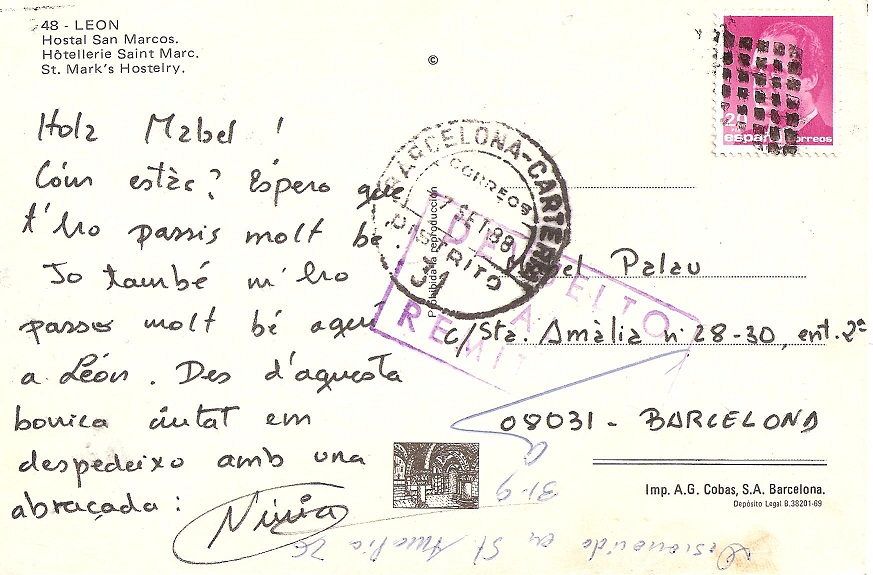 48 - LEON
Hostal San Marcos.
Hôtellerie Saint Marc.
St. Mark's Hostelry.
©
Hola Mabel !
Com estàs? Espero que
t'ho passis molt bé.
Jo també m'ho
passo molt bé aquí
a León. Des d'aquesta
bonica ciutat em
despedeixo amb una
abraçada:
Núria
Prohibida la reproducción
BARCELONA-CARTERIA
CORREOS
7 SET 88
DISTRITO
DEVUELTO
AL
REMIT
españa correos
Mabel Palau
c/Sta. Amàlia nº 28-30, ent. 2ª
08031 - BARCELONA
Imp. A.G. Cobas, S.A. Barcelona.
Depósito Legal B.38201-69
Desconocido en St. Amalia 26
31-9